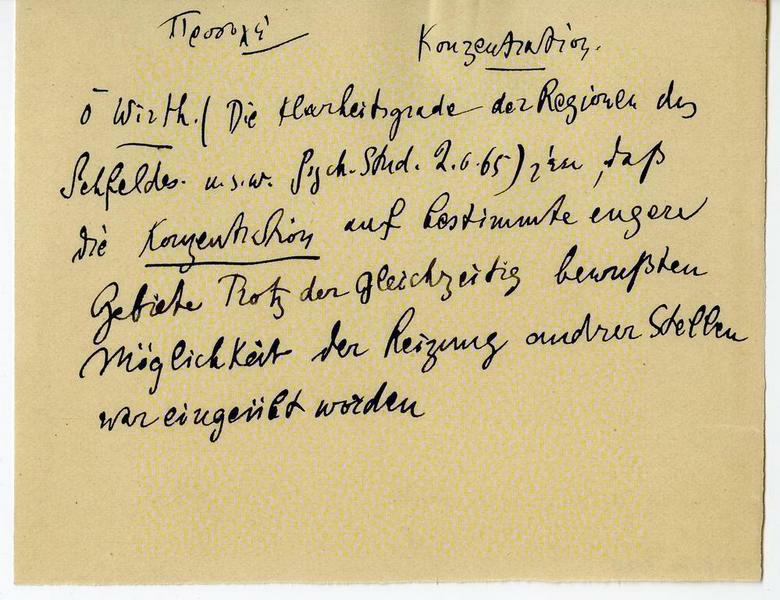 Προσοχή Konzentration.
ὁ Wirth. (Die Klarheitsgrade der Regionen des
Sehfeldes. u.s.w. Psych. Stud. 2. S. 65) λέει, daß
die Konzentration auf bestimmte engere
Gebiete trotz der gleichzeitig bewußten
Möglichkeit der Reizung andrer Stellen
war eingeübt worden